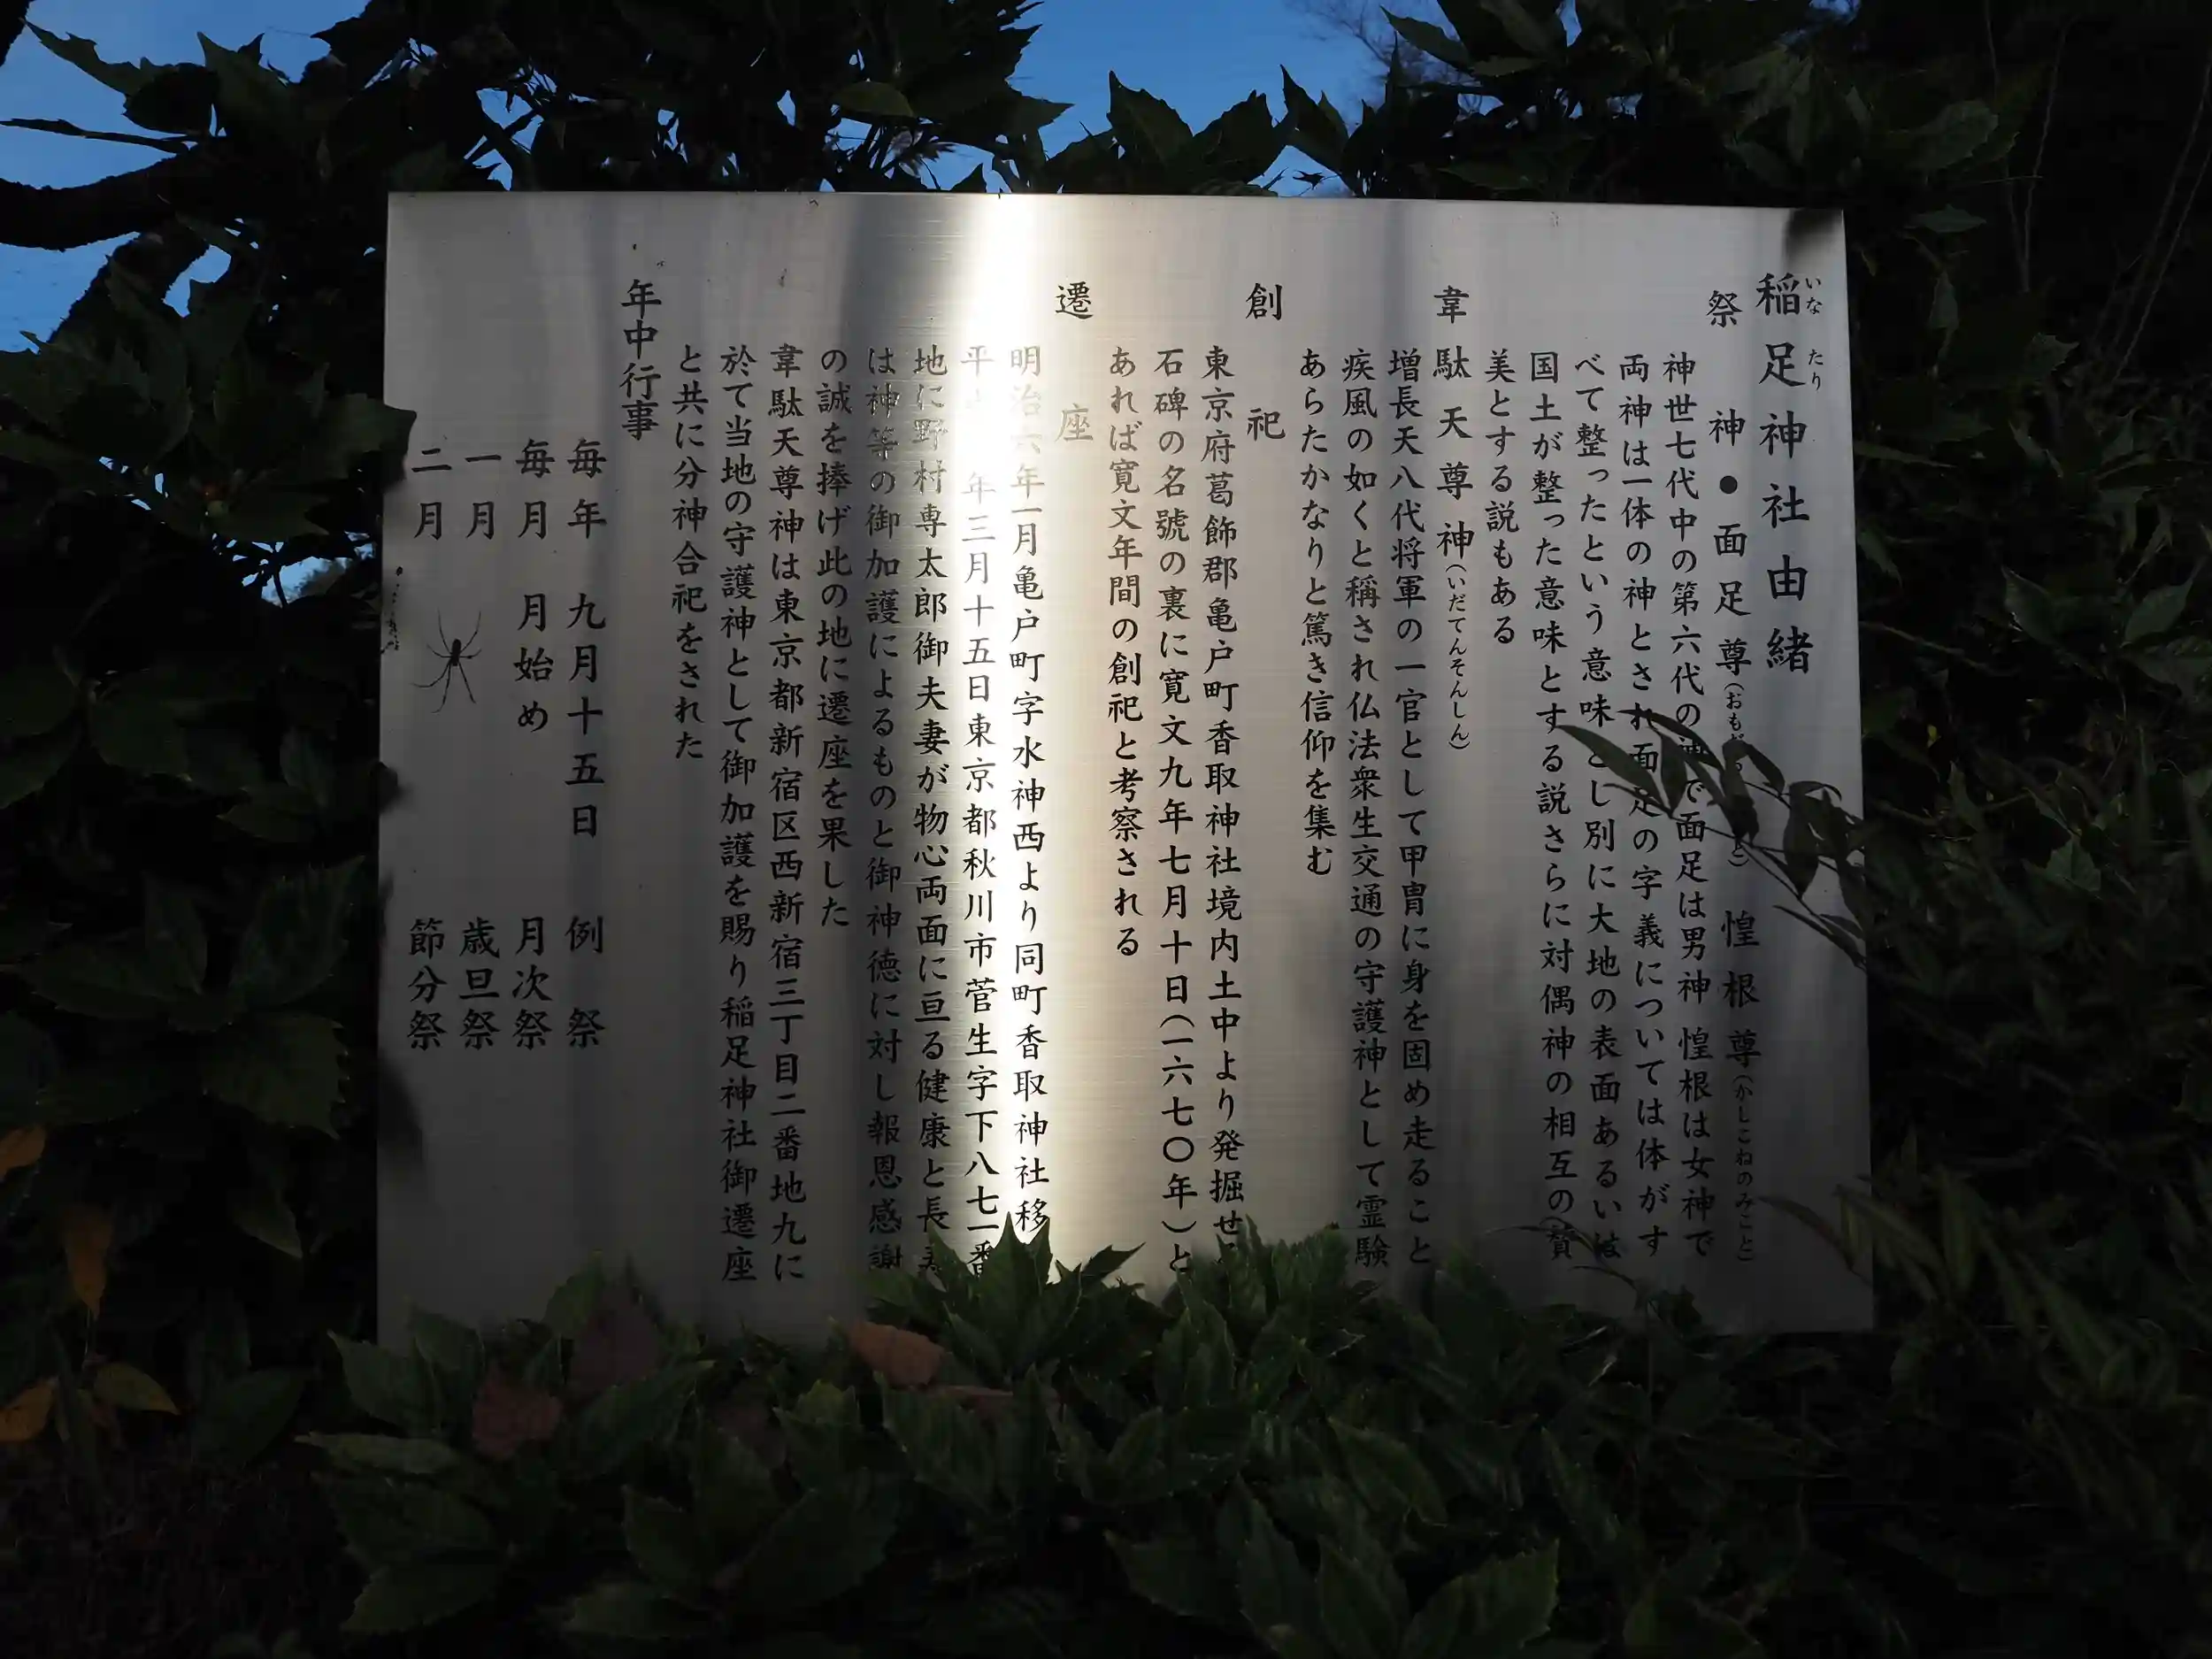 稲足神社由緒
いなたり
祭神●面足尊(おも 惶根尊(かしこねのみこと)
神世七代中の第六代の神で面足は男神惶根は女神で
両神は一体の神とされ面足の字義については体がす
べて整ったという意味とし別に大地の表面あるいは
国土が整った意味とする説さらに対偶神の相互の賛
美とする説もある
韋駄天尊神(いだてんそんしん)
増長天八代将軍の一官として甲冑に身を固め走ること
疾風の如くと稱され仏法衆生交通の守護神として霊験
あらたかなりと篤き信仰を集む
創祀
東京府葛飾郡亀戸町香取神社境内土中より発掘せ
石碑の名號の裏に寛文九年七月十日(一六七〇年)と
あれば寛文年間の創祀と考察される
遷座
明治六年一月亀戸町字水神西より同町香取神社移
平 年三月十五日東京都秋川市菅生字下八七一番
地に野村専太郎御夫妻が物心両面に亘る健康と長寿
は神等の御加護によるものと御神徳に対し報恩感謝
の誠を捧げ此の地に遷座を果した
韋駄天尊神は東京都新宿区西新宿三丁目二番地九に
於て当地の守護神として御加護を賜り稲足神社御遷座
と共に分神合祀をされた
年中行事
毎年 九月十五日 例祭
毎月 月始め 月次祭
一月 歳旦祭
二月 節分祭